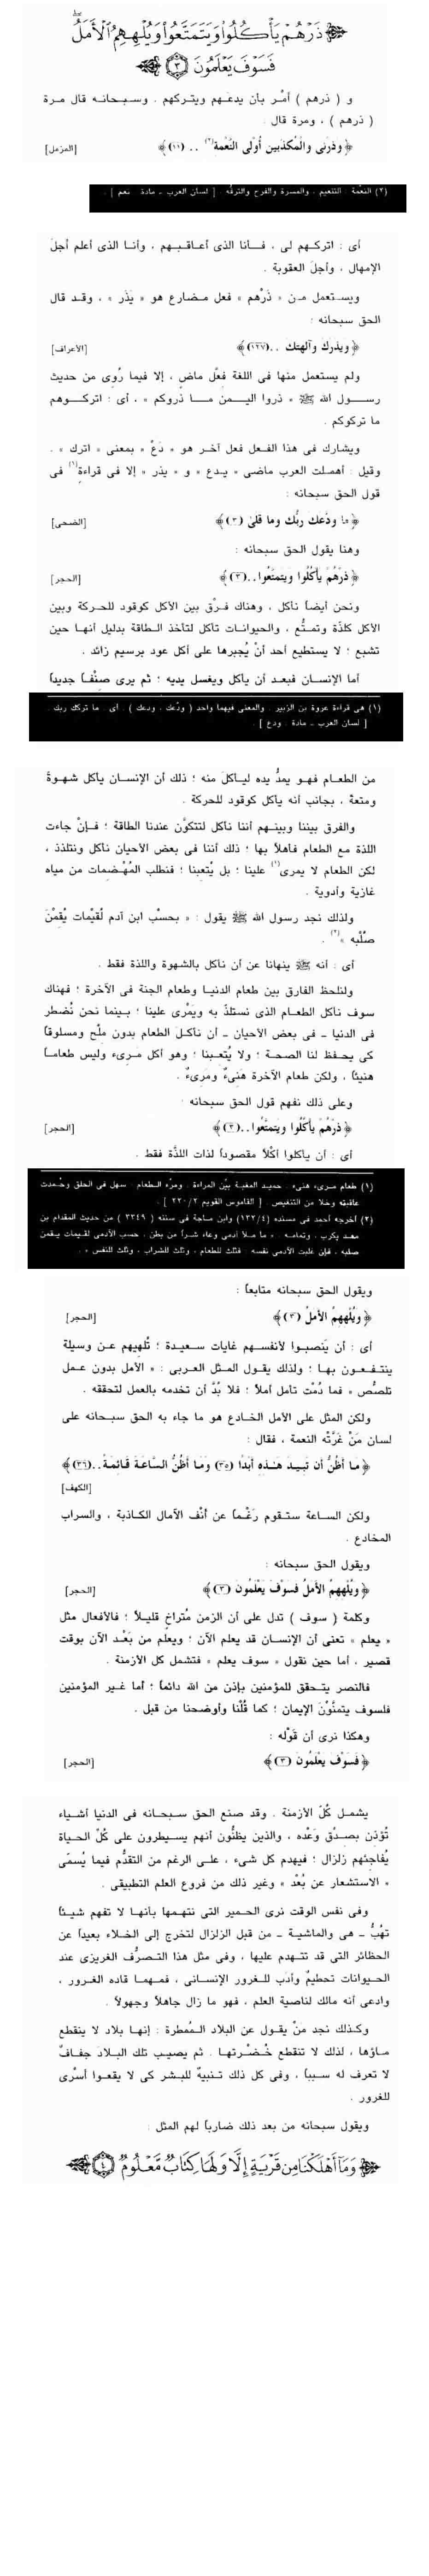 ذَرْهُمْ يَأْكُلُوا وَيَتَمَتَّعُوا وَيُلْهِهِمُ الْأَمَلُ
فَسَوْفَ يَعْلَمُونَ ٣
و ( ذرهم ) أَمْر بأن يدعَهم ويتركهم . وسبحانه قال مرة
( ذرهم ) ، ومرة قال :
﴿ وذرني والمكذبين أولى النعمة (٢) .. (١١) ﴾ [المزمل]
(٢) النعمة : التنعيم . والمسرة والفرح والترفه . [ لسان العرب - مادة : نعم ] .
أى : اتركهم لى ، فأنا الذى أعاقبهم ، وأنا الذى أعلم أجلَ
الإمهال ، وأجلَ العقوبة .
ويستعمل من « ذَرْهم » فعل مضارع هو « يَذَر » ، وقد قال
الحق سبحانه :
﴿ ويذرك وآلهتك .. (١٢٧) ﴾ [الأعراف]
ولم يستعمل منها فى اللغة فِعْل ماضٍ ، إلا فيما رُوِى من حديث
رسول الله ﷺ « ذروا اليمن ما ذروكم » ، أى : اتركوهم
ما تركوكم .
ويشارك فى هذا الفعل فعل آخر هو « دَعْ » بمعنى « اترك » .
وقيل : أهملت العرب ماضى « يدع » و « يذر » إلا فى قراءةٍ (١) فى
قول الحق سبحانه :
﴿ ما ودَّعك ربُّك وما قلىٰ (٣) ﴾ [الضحى]
وهنا يقول الحق سبحانه :
﴿ ذرْهُمْ يأكُلُوا ويتمتَّعُوا .. (٣) ﴾ [الحجر]
ونحن أيضاً نأكل ، وهناك فرْق بين الأكل كوقود للحركة وبين
الأكل كلذَّة وتمتُّع ، والحيوانات تأكل لتأخذ الطاقة بدليل أنها حين
تشبع ؛ لا يستطيع أحد أنْ يُجبرها على أكل عود برسيم زائد .
أما الإنسان فبعد أن يأكل ويغسل يديه ؛ ثم يرى صِنْفاً جديداً
(١) هى قراءة عروة بن الزبير . والمعنى فيهما واحد ( ودَّعك ، ودعك ) . أى . ما تركك ربك .
[ لسان العرب - مادة : ودع ] .
من الطعام فهو يمدُّ يده ليأكلَ منه ؛ ذلك أن الإنسان يأكل شهوةً
ومتعةً ، بجانب أنه يأكل كوقود للحركة .
والفرق بيننا وبينهم أننا نأكل لتتكوَّن عندنا الطاقة ؛ فإنْ جاءت
اللذة مع الطعام فأهلاً بها ؛ ذلك أننا فى بعض الأحيان نأكل ونتلذذ ،
لكن الطعام لا يمرى (١) علينا ؛ بل يُتعِبنا ؛ فنطلب المُهْضِمات من مياه
غازية وأدوية .
ولذلك نجد رسول الله ﷺ يقول : « بحسْب ابن آدم لُقيْمات يُقِمْنَ
صلْبه » (٢) .
أى : أنه ﷺ ينهانا عن أن نأكل بالشهوة واللذة فقط .
ولنلحظ الفارق بين طعام الدنيا وطعام الجنة فى الآخرة ؛ فهناك
سوف نأكل الطعام الذى نستلذّ به ويَمْرى علينا ؛ بينما نحن نُضطر
فى الدنيا - فى بعض الأحيان - أن نأكل الطعام بدون مِلْح ومسلوقاً
كى يحفظ لنا الصحة ؛ ولا يُتعِبنا ؛ وهو أكل مَرىء وليس طعاماً
هنيئاً ، ولكن طعام الآخرة هَنىءٌ ومَرىءٌ .
وعلى ذلك نفهم قول الحق سبحانه :
﴿ ذرْهُمْ يأكُلُوا ويتمتَّعُوا .. (٣) ﴾ [الحجر]
أى : أن يأكلوا أكْلاً مقصوداً لذات اللذَّة فقط .
(١) طعام مرىء هنىء : حميد المغبة بيِّن المراءة . ومرؤ الطعام : سهل فى الحلق وحُمدت
عاقبته وخلا من التنغيص . [ القاموس القويم ٢٢٠/٢ ] .
(٢) أخرجه أحمد فى مسنده (١٣٢/٤) وابن ماجة فى سننه ( ٣٣٤٩ ) من حديث المقدام بن
معد يكرب . وتمامه : « ما ملأ آدمى وعاء شراً من بطن ، حسب الآدمى لقيمات يقمن
صلبه ، فإن غلبت الآدمى نفسه . فثلث للطعام ، وثلث للشراب ، وثلث للنفس » .
ويقول الحق سبحانه متابعاً :
﴿ ويُلْههمُ الأملُ (٣) ﴾ [الحجر]
أى : أن يَنصِبوا لأنفسهم غايات سعيدة ؛ تُلهيهم عن وسيلة
ينتفعون بها ؛ ولذلك يقول المثل العربى : « الأمل بدون عمل
تلصُّص » فما دُمْت تأمل أملاً ؛ فلا بُدَّ أن تخدمه بالعمل لتحققه .
ولكن المثل على الأمل الخادع هو ما جاء به الحق سبحانه على
لسان مَنْ غَرَّتْه النعمة ، فقال :
﴿ ما أظُنُّ أن تبيد هَٰذه أبدًا (٣٥) وما أظُنُّ السَّاعة قائمةً .. (٣٦) ﴾
[الكهف]
ولكن الساعة ستقوم رَغْماً عن أنْف الآمال الكاذبة ، والسراب
المخادع .
ويقول الحق سبحانه :
﴿ ويُلْههمُ الأملُ فسوْف يعْلمُون (٣) ﴾ [الحجر]
وكلمة ( سوف ) تدل على أن الزمن مُتراخٍ قليلاً ؛ فالأفعال مثل
« يعلم » تعنى أن الإنسان قد يعلم الآن ؛ ويعلم من بَعْد الآن بوقت
قصير ، أما حين نقول « سوف يعلم » فتشمل كل الأزمنة .
فالنصر يتحقق للمؤمنين بإذن من الله دائماً ؛ أما غير المؤمنين
فلسوف يتمنَّوْنَ الإيمان ؛ كما قُلْنا وأوضحنا من قبل .
وهكذا نرى أن قوله :
﴿ فسوْف يعْلمُون (٣) ﴾ [الحجر]
يشمل كُلّ الأزمنة . وقد صنع الحق سبحانه فى الدنيا أشياء
تُؤذِن بصدْق وَعْده ، والذين يظنُّون أنهم يسيطرون على كُلِّ الحياة
يُفاجِئهم زلزال ؛ فيهدم كل شىء ، على الرغم من التقدُّم فيما يُسمَّى
« الاستشعار عن بُعْد » وغير ذلك من فروع العلم التطبيقى .
وفى نفس الوقت نرى الحمير التى نتهمها بأنها لا تفهم شيئاً
تهُبُّ - هى والماشية - من قبل الزلزال لتخرج إلى الخلاء بعيداً عن
الحظائر التى قد تتهدم عليها ، وفى مثل هذا التصرُّف الغريزى عند
الحيوانات تحطيمٌ وأدَب للغرور الإنسانى ، فمهما قاده الغرور ،
وادعى أنه مالك لناصية العلم ، فهو ما زال جاهلاً وجهولاً .
وكذلك نجد مَنْ يقول عن البلاد المُمطرة : إنها بلاد لا ينقطع
ماؤها ، لذلك لا تنقطع خُضْرتها . ثم يصيب تلك البلادَ جفافٌ
لا تعرف له سبباً ، وفى كل ذلك تنبيهٌ للبشر كى لا يقعوا أسْرى
للغرور .
ويقول سبحانه من بعد ذلك ضارباً لهم المثل :
وَمَا أَهْلَكْنَا مِن قَرْيَةٍ إِلَّا وَلَهَا كِتَابٌ مَّعْلُومٌ ٤